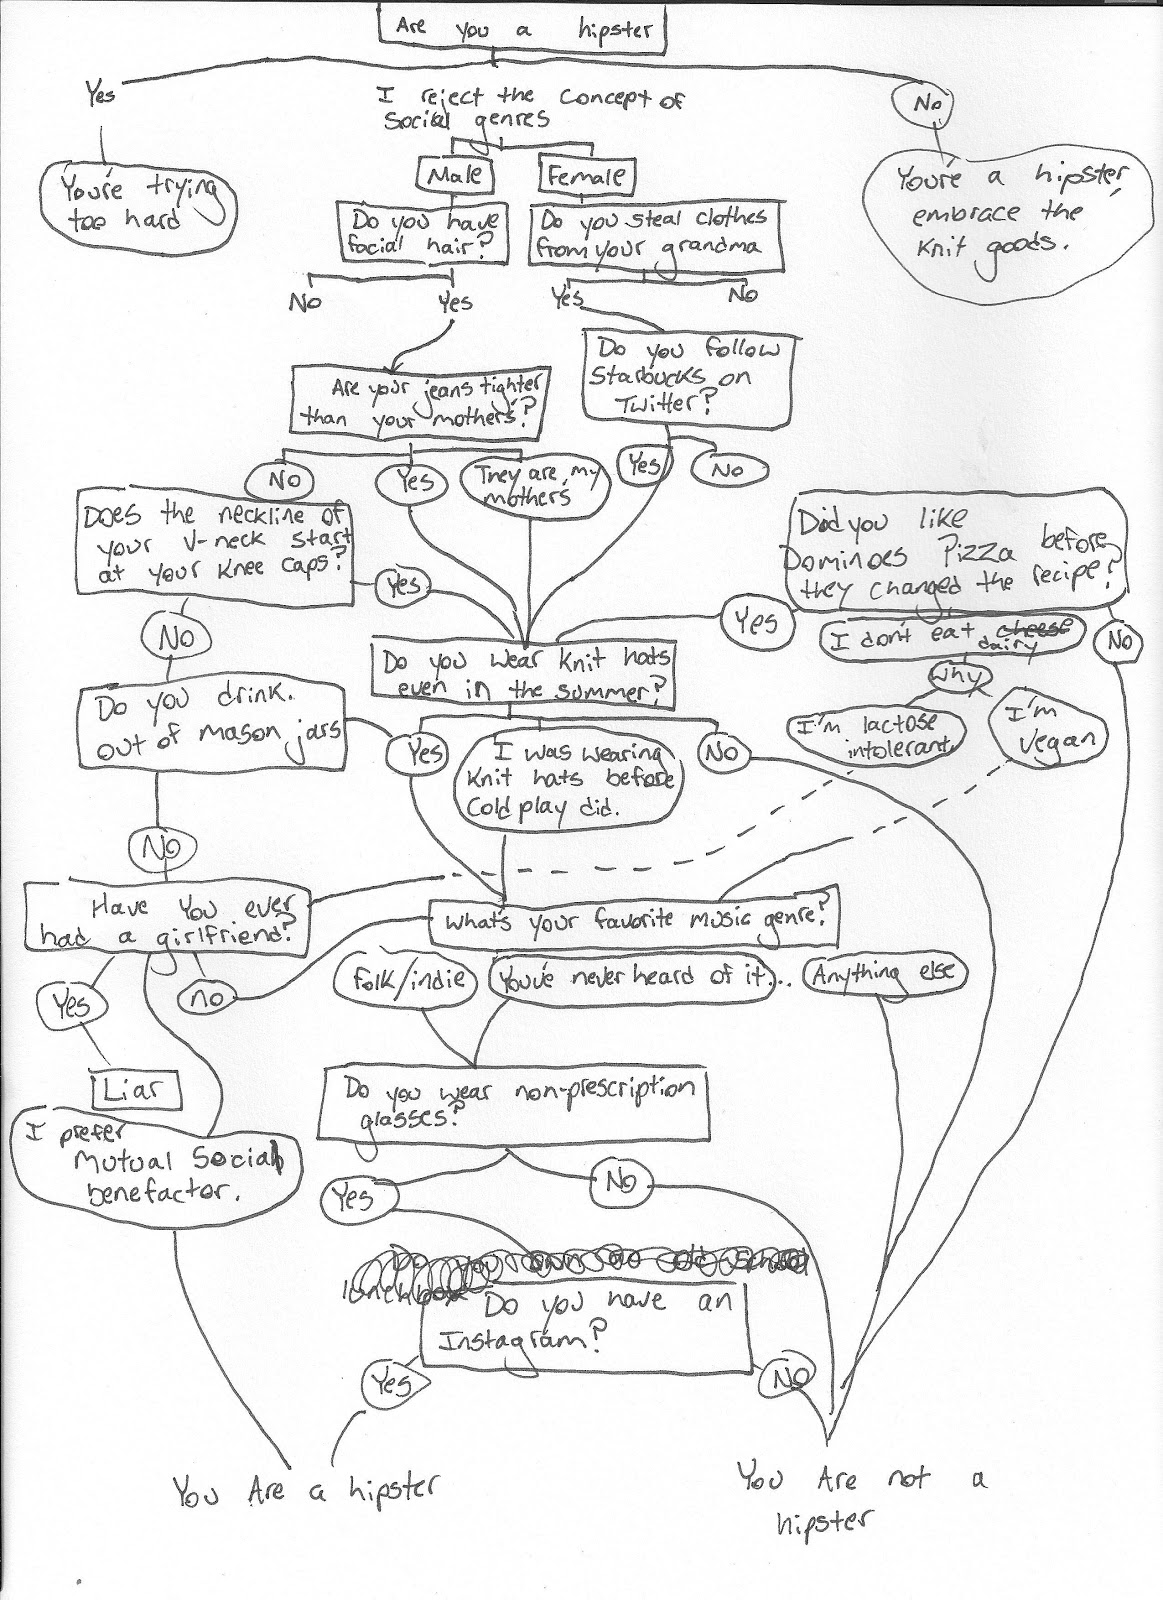 Are you a hipster
Yes
I reject the concept of
Social genres
No
You're trying
too hard
Male
Female
You're a hipster,
embrace the
knit goods.
Do you have
facial hair?
Do you steal clothes
from your grandma
No
Yes
Yes
No
Are your jeans tighter
than your mothers'?
Do you follow
Starbucks on
Twitter?
No
Yes
They are my
mothers
Yes
No
Does the neckline of
your V-neck start
at your knee caps?
Yes
Did you like
Dominoes Pizza before
they changed the recipe?
No
Yes
I don't eat cheese
dairy
No
Why
Do you wear knit hats
even in the summer?
Do you drink
out of mason jars
I'm lactose
intolerant
I'm
vegan
Yes
I was wearing
knit hats before
Coldplay did.
No
No
Have you ever
had a girlfriend?
What's your favorite music genre?
Yes
no
folk/indie
You've never heard of it...
Anything else
Liar
Do you wear non-prescription
glasses?
I prefer
Mutual Social
benefactor.
Yes
No
Do you own an old school
lunchbox
Do you have an
Instagram?
Yes
No
You Are a hipster
You Are not a
hipster